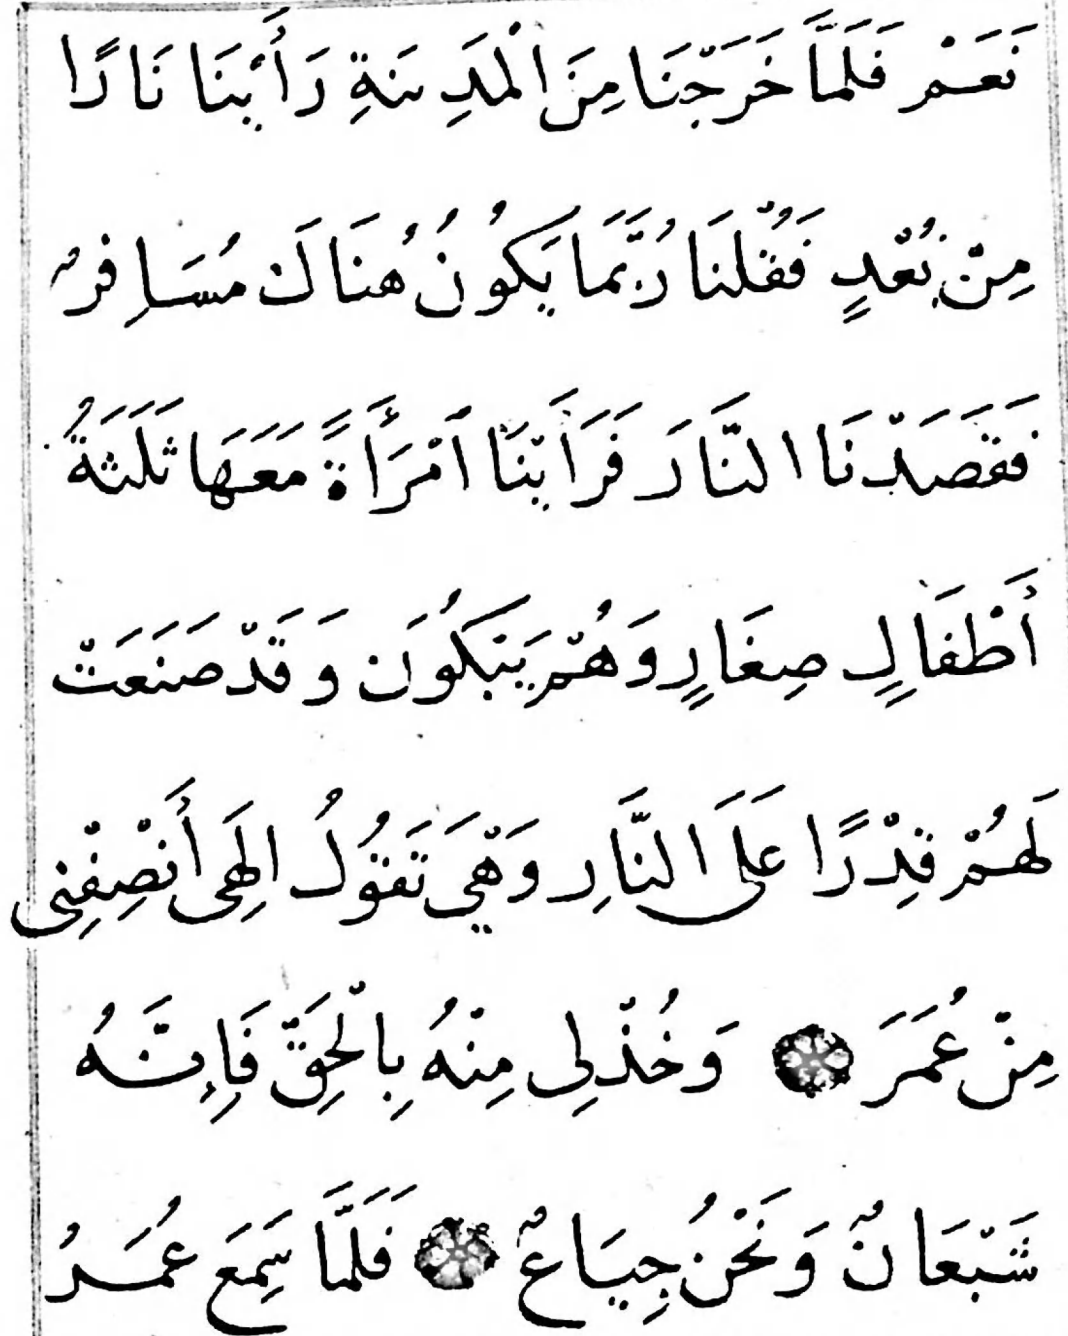 نَعَمْ فَلَمَّا خَرَجْنَا مِنَ الْمَدِينَةِ رَأَيْنَا نَارًا
مِنْ بُعْدٍ فَقُلْنَا رُبَّمَا يَكُونُ هُنَاكَ مُسَافِرٌ
فَقَصَدْنَا النَّارَ فَرَأَيْنَا آمْرَأَةً مَعَهَا ثَلَثَةُ
أَطْفَالٍ صِغَارٍ وَهُمْ يَبْكُونَ وَقَدْ صَنَعَتْ
لَهُمْ قِدْرًا عَلَى النَّارِ وَهْيَ تَقُولُ الِهَى أَنْصِفْنِى
مِنْ عُمَرَ وَخُذْلِى مِنْهُ بِالْحَقِّ فَإِنَّهُ
شَبْعَانٌ وَنَحْنُ جِيَاعٌ فَلَمَّا سَمِعَ عُمَرُ